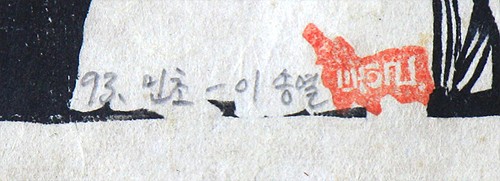 93. 민초 - 이 송열